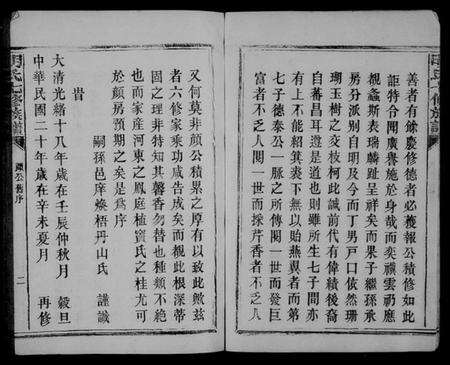 善者有餘慶修德者必獲報公積修如此
詎特令聞廣譽施於身哉而奕禩雲礽應
覩螽斯表瑞麟趾呈祥矣而果子繼孫承
房分派別自明及今而丁男戸口依然珊
瑚玉樹之交枝柯此誠前代有偉績後裔
自蕃昌耳遵是道也則雖所生七子間亦
有不能上紹箕裘下無以貽燕翼者而第
七子德泰公一脉之所傳閱一世而發巨
富者不乏人閱一世而採芹香者不乏人
又何莫非顏公積累之厚有以致此歟茲
者六修家乗功成告成矣而覩此根深蒂
固之理非特知其馨香勿替也種類不絶
也而家産河東之鳳庭植竇氏之桂尤可
於顏房預期之矣是爲序
嗣孫邑庠燦梧丹山氏 謹識
旹
大清光緒十八年歲在壬辰仲秋月 穀旦
中華民國二十年歲在辛未夏月 再修
顏公舊序 二